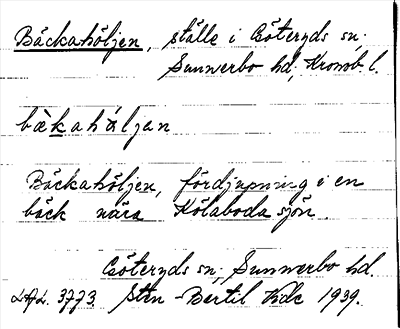 Bäckahöljen, ställe i Göteryds sn,
Sunnerbo hd, Kronob. l.
bækahàljan
Bäckahöljen, fördjupning i en
bäck nära Kölaboda sjön.
Göteryds sn, Sunnerbo hd.
LAL. 3773. Sten-Bertil Vide 1939.